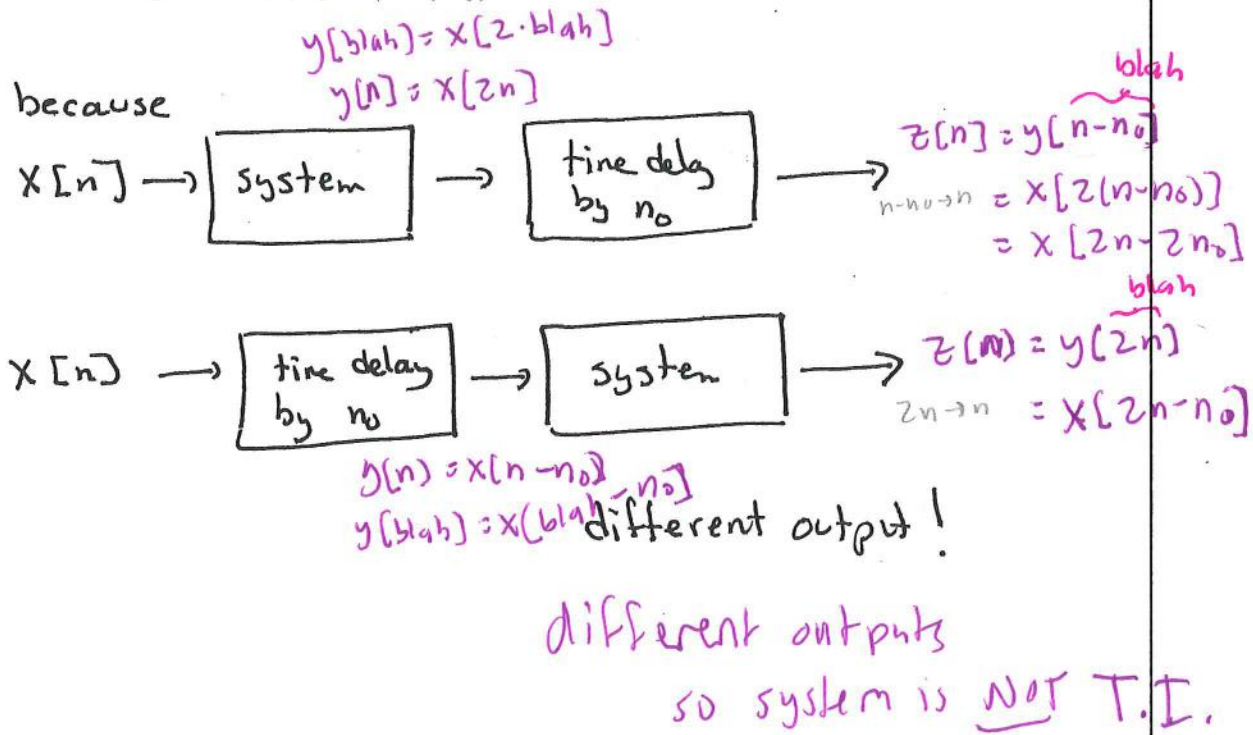 y[blah] = x[2·blah]
y[n] = x[2n]
because
blah
X[n] → system → time delay by n₀ → z[n] = y[n-n₀]
n-n₀→n = x[2(n-n₀)]
= x[2n-2n₀]
blah
X[n] → time delay by n₀ → system → z[n] = y[2n]
2n→n = x[2n-n₀]
y[n] = x[n-n₀]
y[blah] = x[blah-n₀]
different output!
different outputs
so system is NOT T.I.